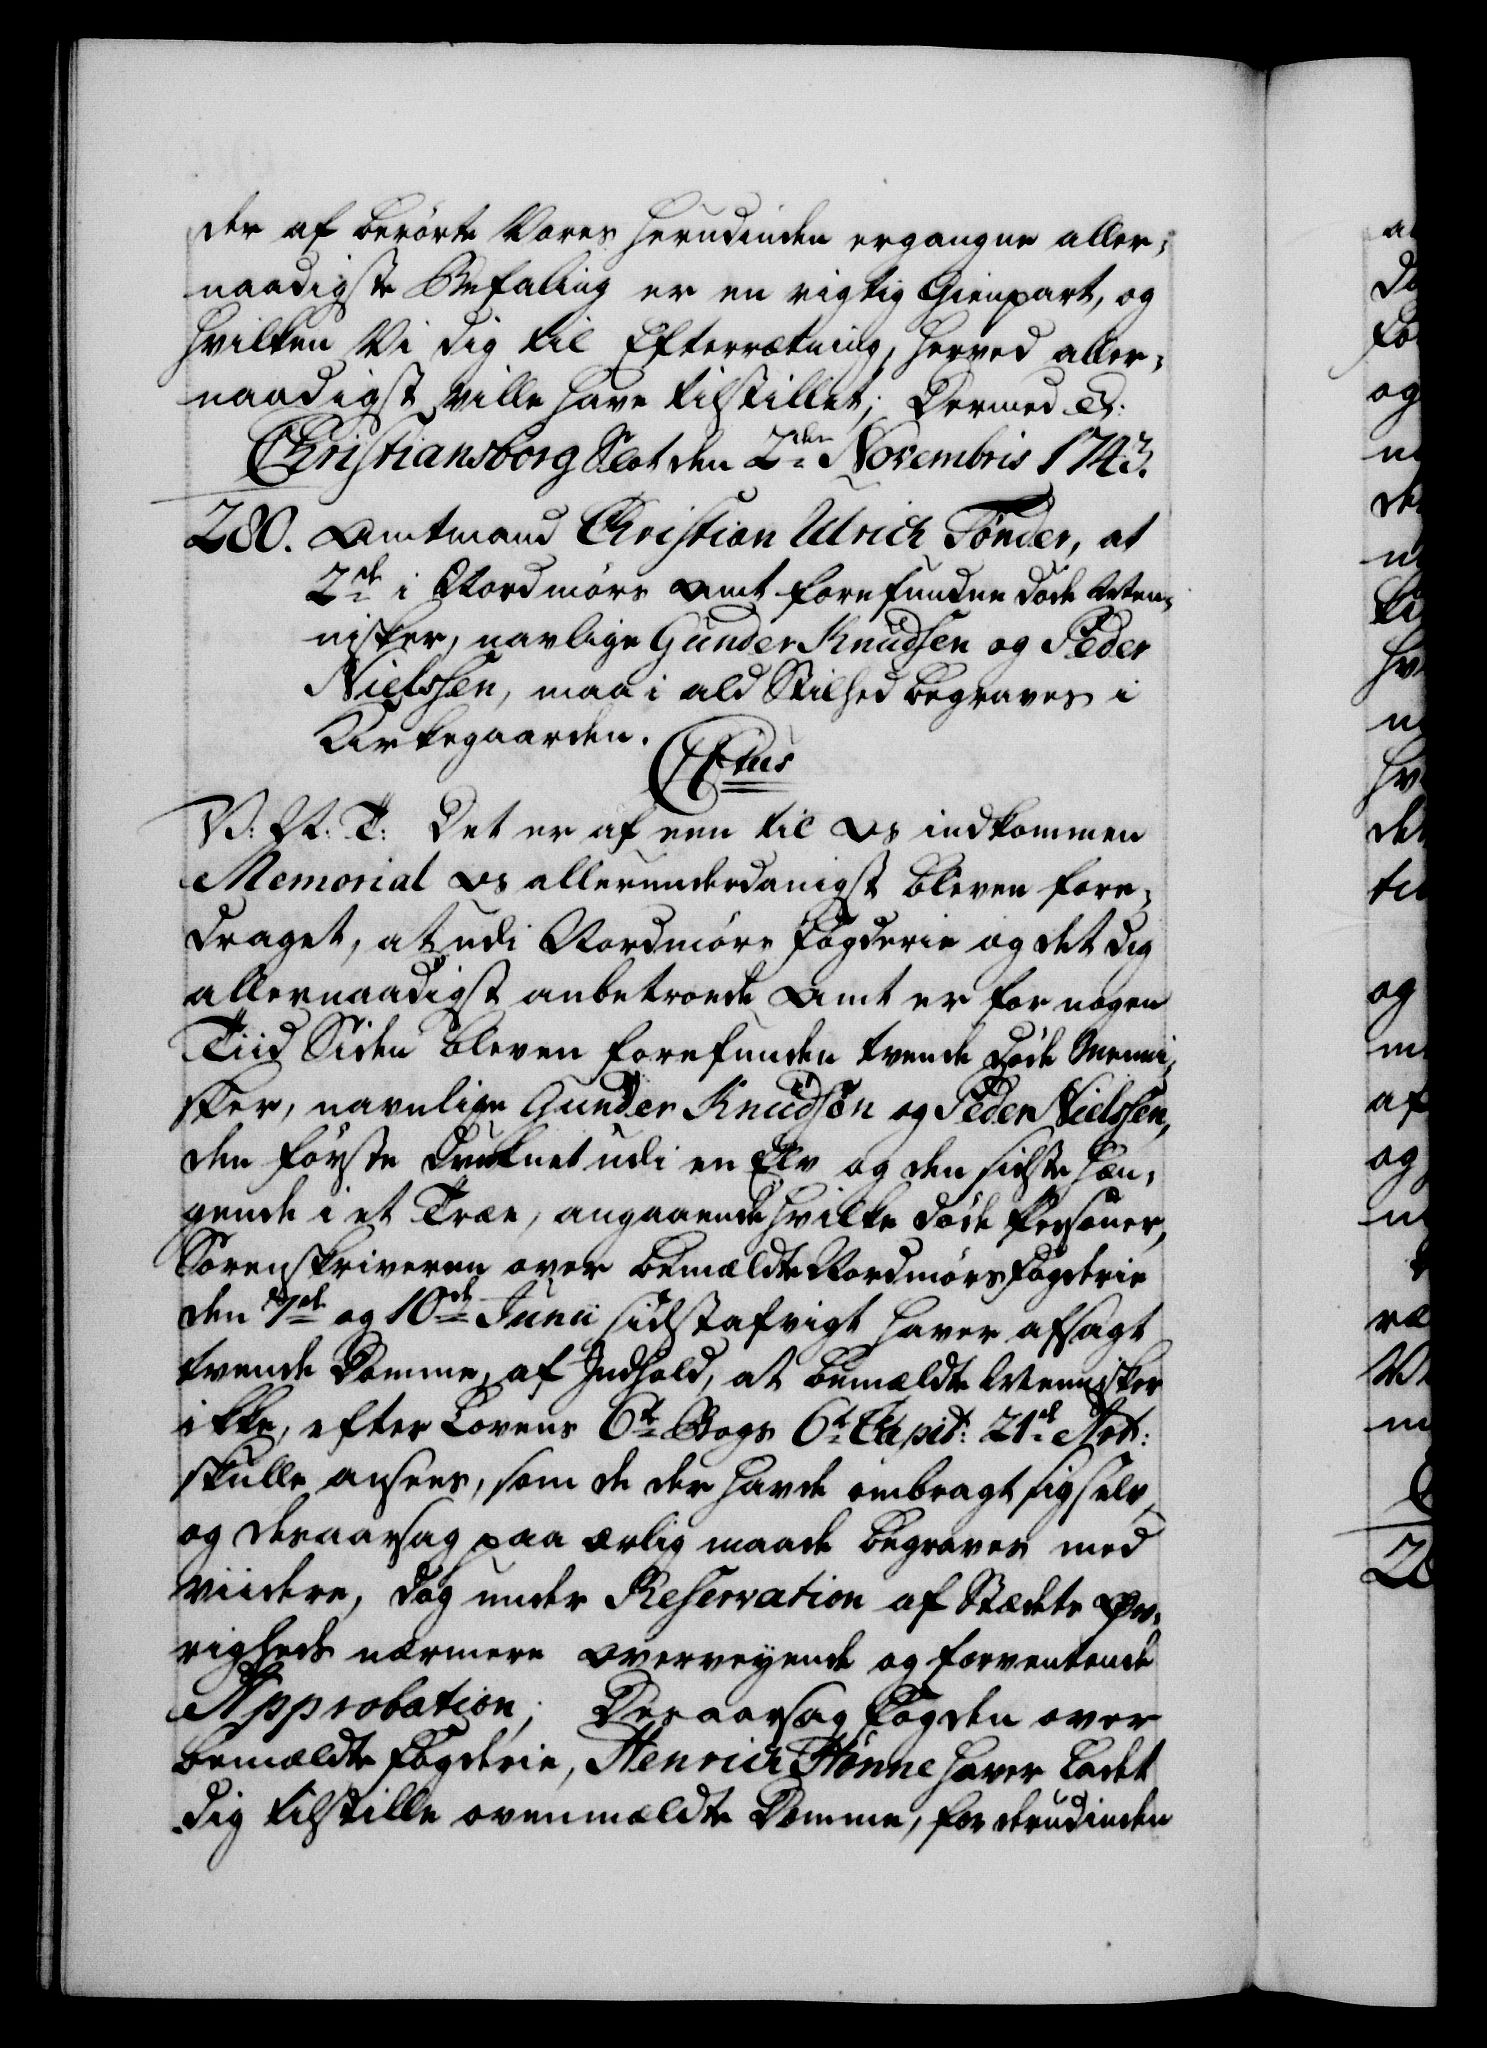 der af berörte Vores herudinden ergangne aller-
naadigste Befaling er en rigtig Gienpart, og
hvilken Vi dig til Efterretning, herved aller-
naadigst ville have tilstillet; Dermed &:
Christiansborg Slot den 2den Novembris 1743.
280. Amtmand Christian Ulrich Tönder, at
2de i Nordmörs Amt forefundne döde Men-
nisker, navlige Gunder Knudsen og Peder
Nielssen, maa i ald Stilhed begraves i
Kirkegaarden.
C6tus
V: G: T: Det er af een til Os indkommen
Memorial Os allerunderdanigst bleven fore-
draget, at udi Nordmörs Fogderie og det dig
allernaadigst anbetroede Amt er for nogen
Tiid Siden bleven forefunden tvende döde Menni-
sker, navnlige Gunder Knudsön og Peder Nielssen,
den förste druknet udi en Elv og den sidste hæn-
gende i et Træe, angaaende hvilke döde Persöner,
Sorenskriveren over bemældte Nordmörs Fogderie
den 7de og 10de Junii sidstafvigt haver afsagt
tvende Domme, af Indhold, at bemældte Mennisker
ikke, efter Lovens 6te Bogs 6te Capit: 21de Art:
skulle ansees, som de der havde ombragt sig selv,
og desaarsag paa ærlig maade begraves med
viidere, dog under Reservation af Stædets Öv-
righeds nærmere overveyende og forventende
Approbation; Desaarsag Fogden over
bemældte Fogderie, Henrich Hönne haver ladet
dig tilstille ovenmældte Domme, for derudinden